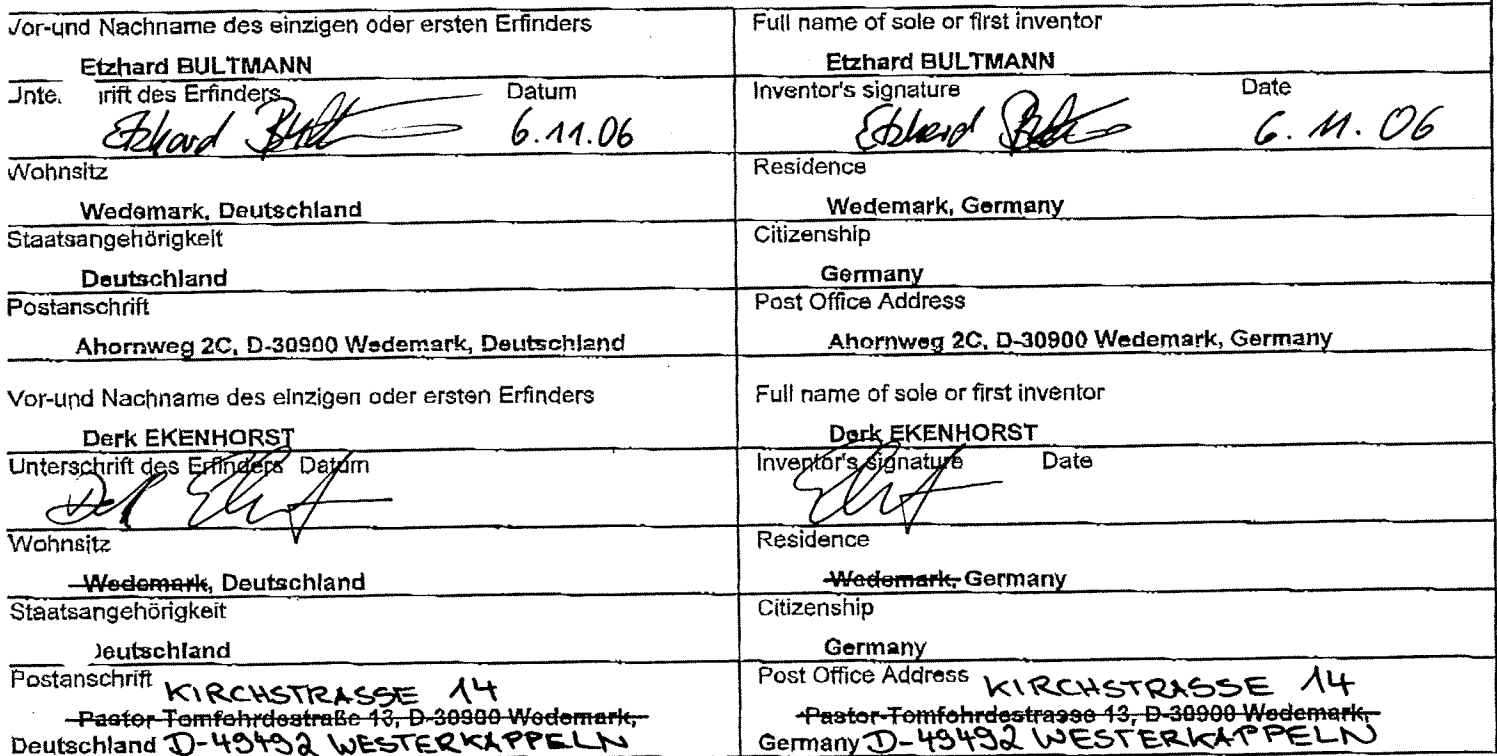 Vor-und Nachname des einzigen oder ersten Erfinders
Etzhard BULTMANN
Unte rift des Erfinders Datum
Etzhard Bultmann 6.11.06
Wohnsitz
Wedemark, Deutschland
Staatsangehörigkeit
Deutschland
Postanschrift
Ahornweg 2C, D-30900 Wedemark, Deutschland
Vor-und Nachname des einzigen oder ersten Erfinders
Derk EKENHORST
Unterschrift des Erfinders Datum
Wohnsitz
Wedemark, Deutschland
Staatsangehörigkeit
Deutschland
Postanschrift KIRCHSTRASSE 14
Pastor-Tomfohrdestraße 13, D-30900 Wedemark,
Deutschland D-49492 WESTERKAPPELN
Full name of sole or first inventor
Etzhard BULTMANN
Inventor's signature Date
Etzhard Bultmann 6.11.06
Residence
Wedemark, Germany
Citizenship
Germany
Post Office Address
Ahornweg 2C, D-30900 Wedemark, Germany
Full name of sole or first inventor
Derk EKENHORST
Inventor's signature Date
Residence
Wedemark, Germany
Citizenship
Germany
Post Office Address KIRCHSTRASSE 14
Pastor-Tomfohrdestrasse 13, D-30900 Wedemark,
Germany D-49492 WESTERKAPPELN